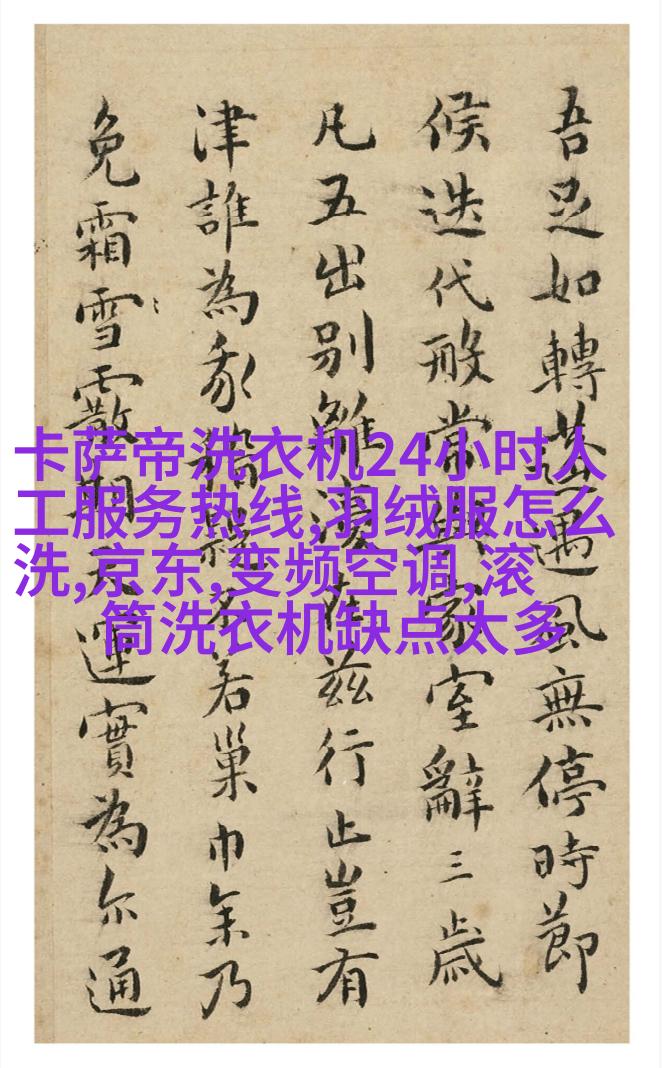 卡萨帝洗衣机24小时人
工服务热线,羽绒服怎么
洗,京东,变频空调,滚
筒洗衣机缺点太多
吾足如轉蓬遇風無停時節
候迭代常家室辭三歲
凡五出別離在茲行止豈有
津誰為若巢巾乃
免霜雪霰期天運實為尔通